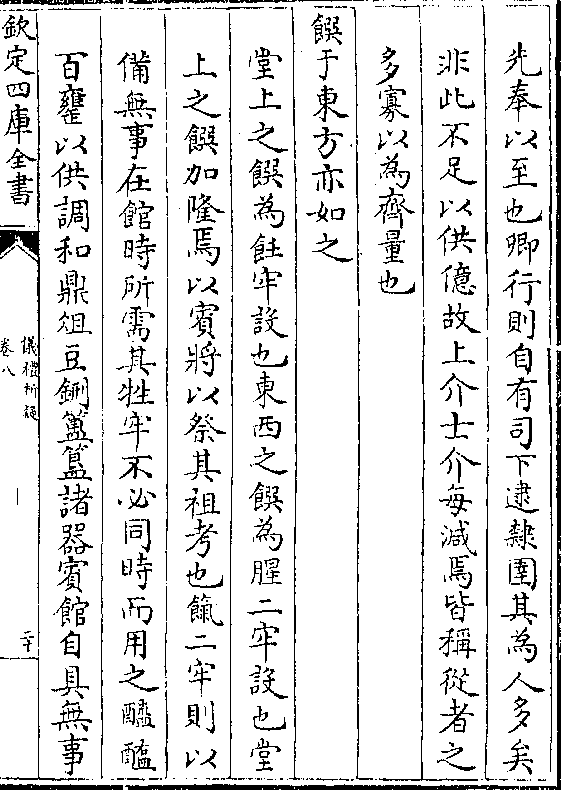 先奉以至也卿行則自有司下逮隸圉其為人多矣
非此不足以供億故上介士介每減焉皆稱從者之
多寡以為齊量也
饌于東方亦如之
堂上之饌為飪牢設也東西之饌為腥二牢設也堂
上之饌加隆焉以賓將以祭其祖考也餼二牢則以
備無事在館時所需其牲牢不必同時而用之醯醢
百罋以供調和鼎俎豆鉶簠簋諸器賓館自具無事
欽定四庫全書
儀禮析疑
卷八
二十